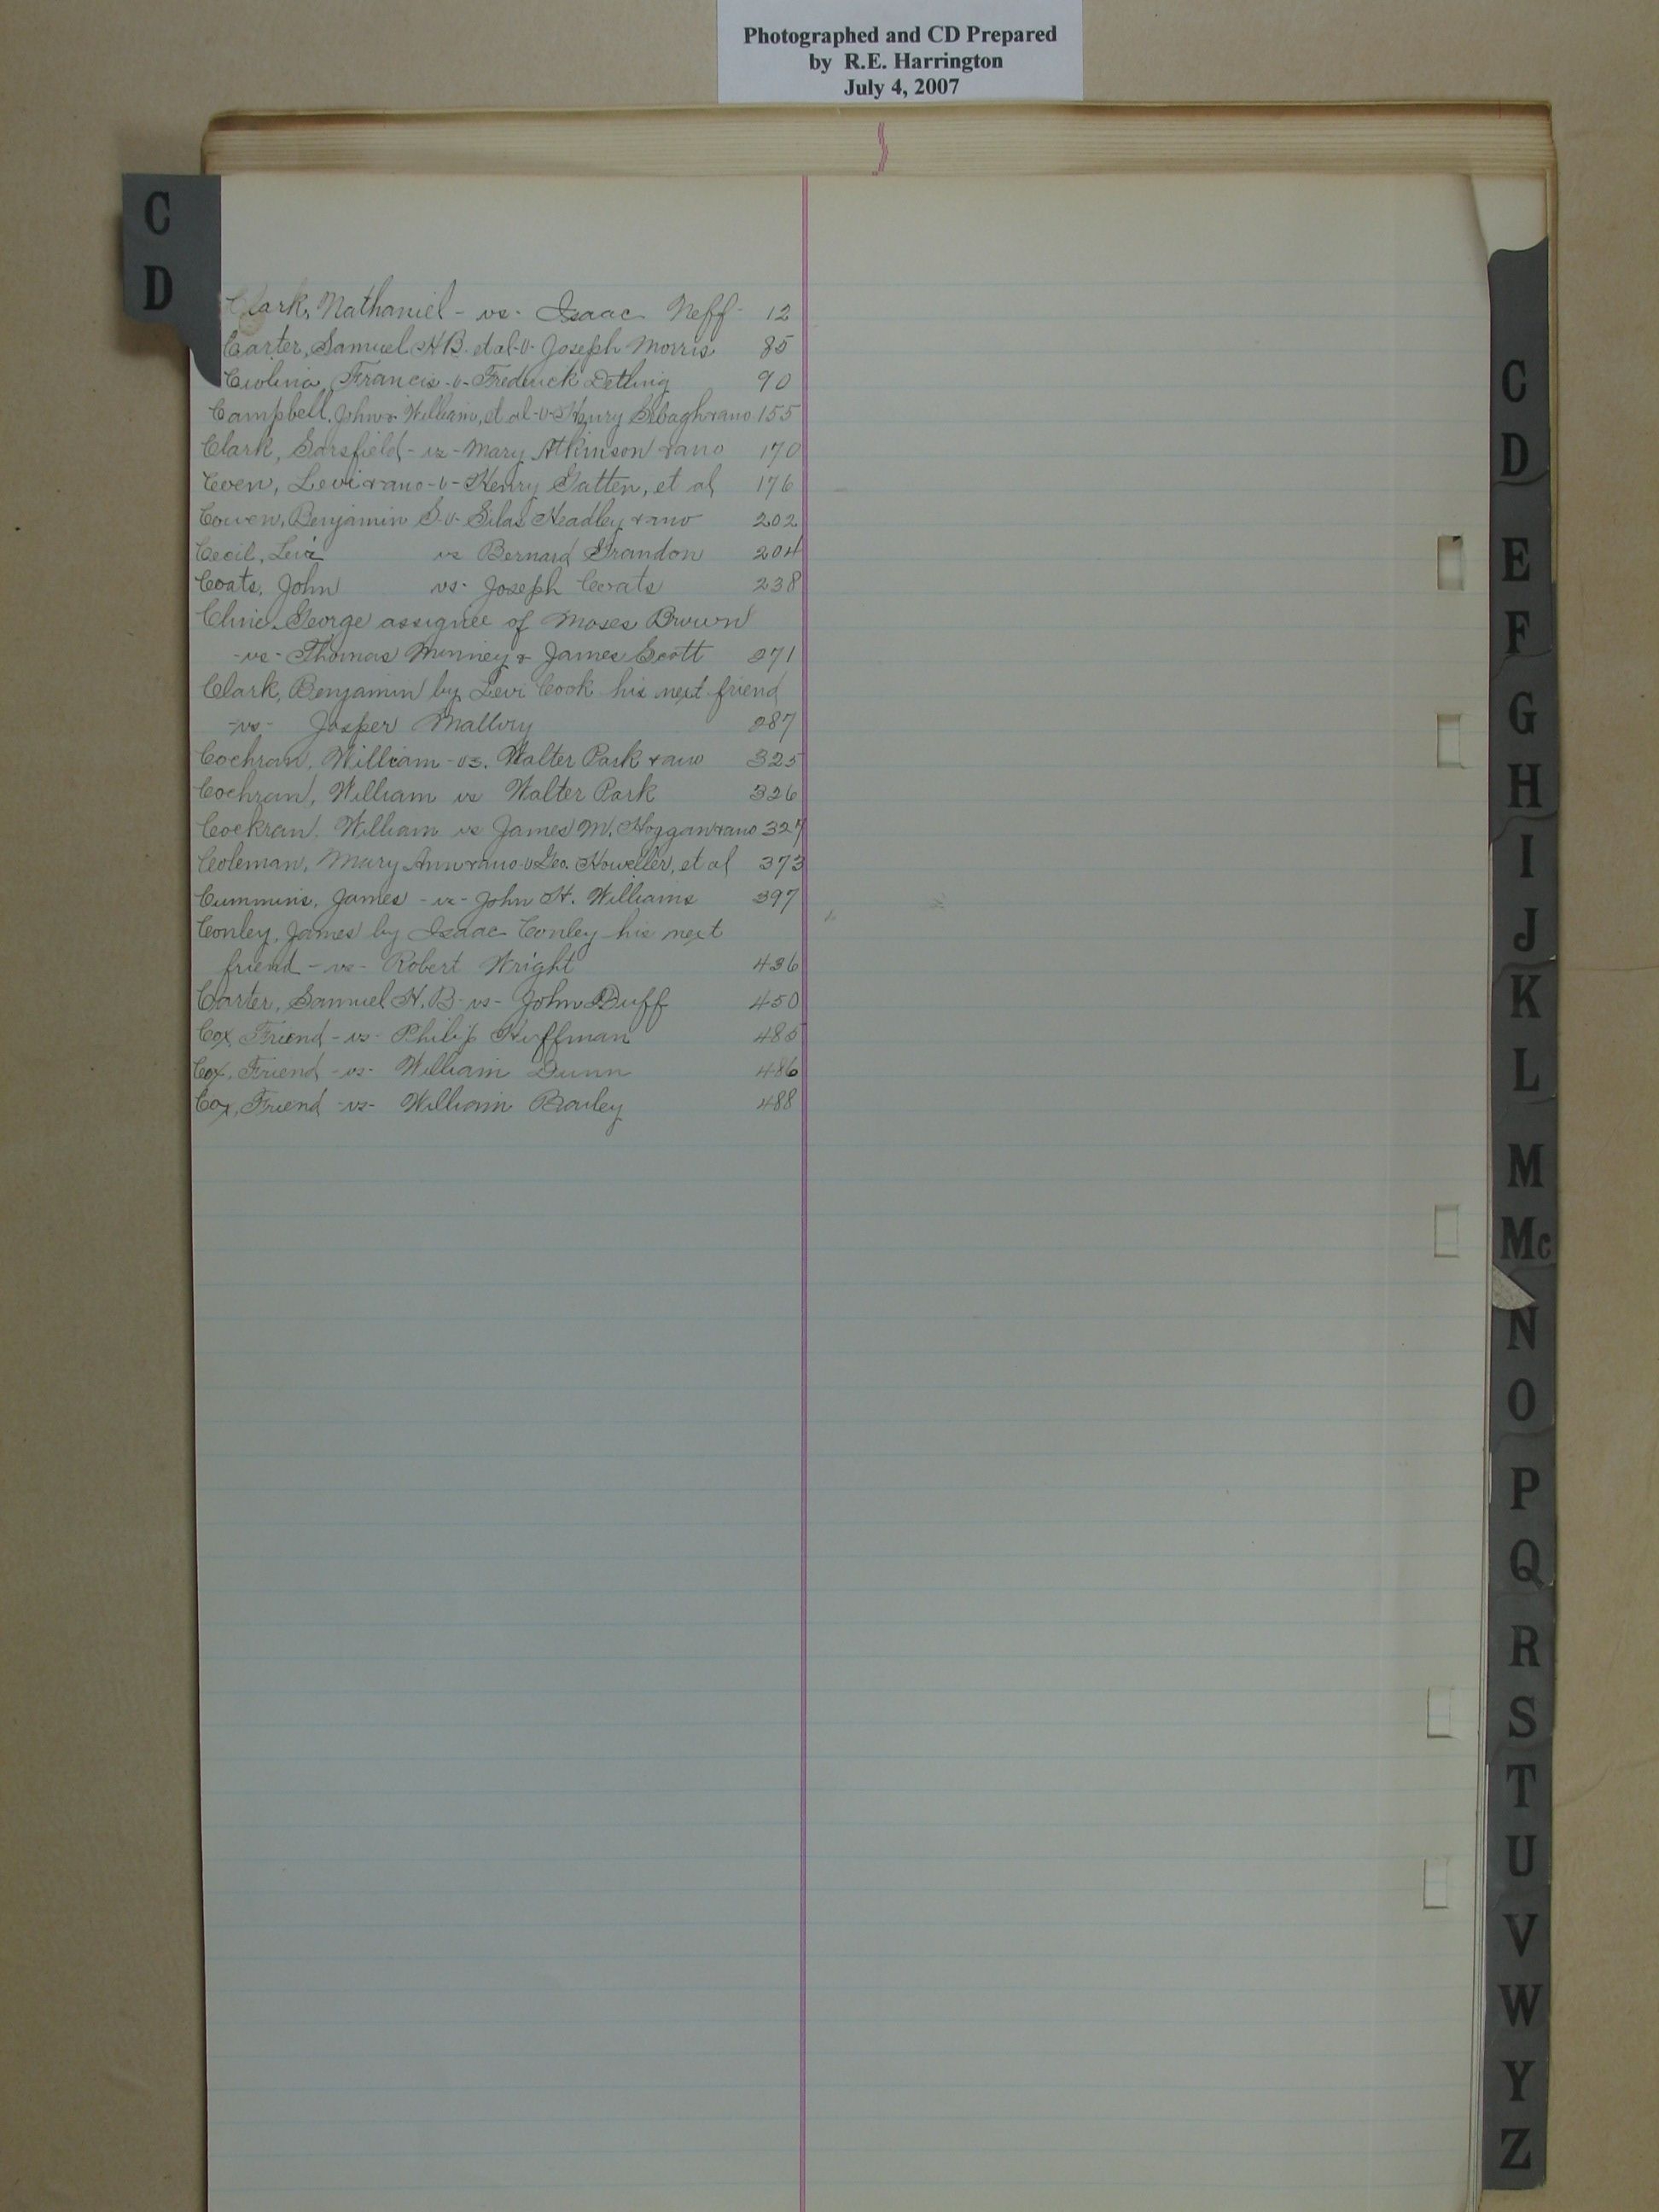 Photographed and CD Prepared
by R.E. Harrington
July 4, 2007
C
D
Clark, Nathaniel - vs - Isaac Neff - 12
Carter, Samuel H B. et al -v- Joseph Morris 85
Francis -v- Frederick Detling 90
Campbell, John & William, et al -v- Henry & ano 155
Clark, Sarsfield - vs - Mary Atkinson & ano 170
Coen, Levi & ano -v- Henry Gatten, et al 176
Cowen, Benjamin S. -v- Silas Headley & ano 202
Cecil, Levi vs Bernard Grandon 204
Coats, John vs - Joseph Coats 238
Cline, George assignee of Moses Brown
-vs- Thomas Minney & James Scott 271
Clark, Benjamin by Levi Cook his next friend
-vs- Jasper Mallory 287
Cochran, William - vs. Walter Park & ano 325
Cochran, William vs Walter Park 326
Cockran, William vs James M. Hoggan & ano 327
Coleman, Mary Ann & ano -v- Geo. Howeller, et al 373
Cummins, James - vs - John H. Williams 397
Conley, James by Isaac Conley his next
friend - vs - Robert Wright 436
Carter, Samuel H. B - vs - John Duff 450
Cox, Friend - vs - Philip Huffman 485
Cox, Friend - vs - William Dunn 486
Cox, Friend - vs - William Bailey 488
C
D
E
F
G
H
I
J
K
L
M
Mc
N
O
P
Q
R
S
T
U
V
W
Y
Z